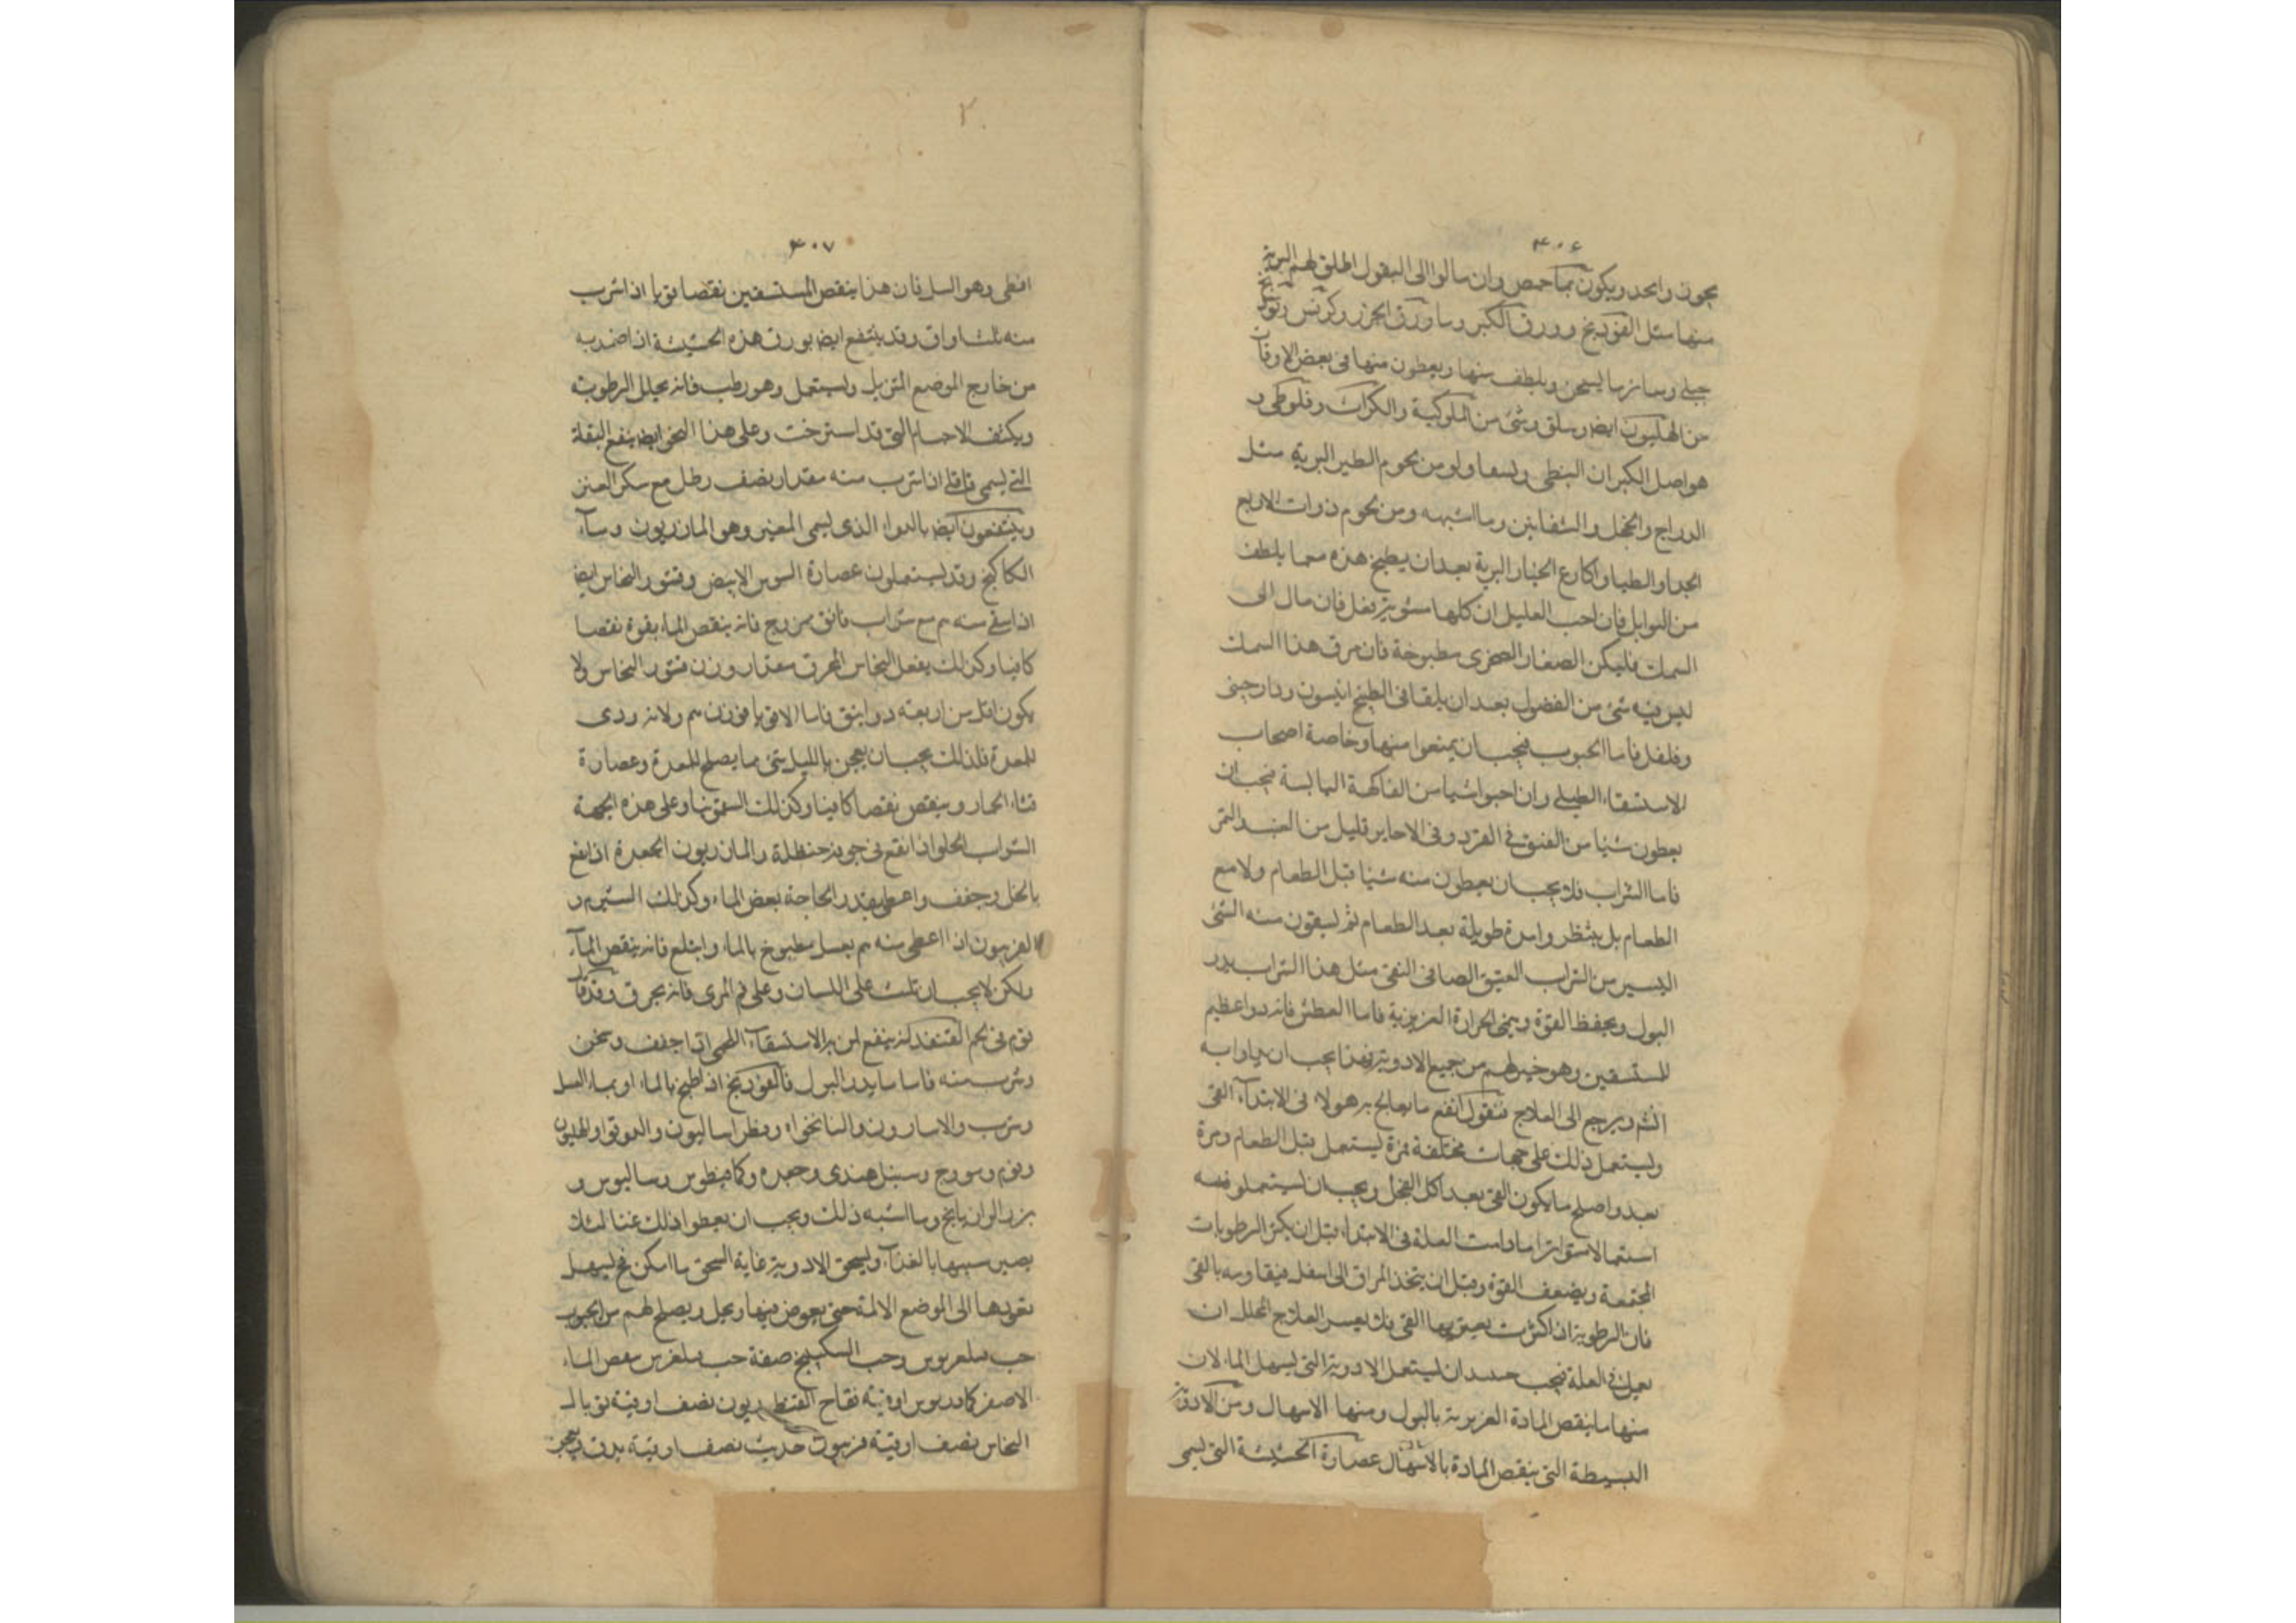 ۴۰۶
بجون واحد ويكون بماحمص وان سالوا الى البقول اطلق لهم البرية
منها مثل الفودنج وورق الكبر وساورق الجزر وكرفس
جبلى وسائر ما يسخن ويلطف منها ويعطون منها فى بعض الاوقات
من الهليون ايضا وسلق وشئ من الملوكية والكراث وفلوطى و
هو اصل الكبران النبطى ومن لحوم الطير البرية مثل
الدراج والحجل والشفانين وما اشبهه ومن لحوم ذوات الاربع
الجدا والظبا واكارع الخنازير البرية بعد ان يطبخ هذه مما يلطف
من التوابل فان احب العليل اكلها مشوية فعل فان مال الى
السمك فليكن الصغار الصخرى مطبوخة فان مرق هذا السمك
ليس فيه شئ من الفضول بعد ان يلقا فى الطبخ انيسون ودارجينى
وفلفل فاما الحبوب فيجب ان يمنعوا منها وخاصة اصحاب
الاستسقاء الطبلى وان احبوا شيا من الفاكهة اليابسة فيجب ان
يعطون شيا من الفستق فى الفرد وفى الاحايين قليل من العنب التمر
فاما الشراب فلا يجب ان يعطون منه شيا قبل الطعام ولا مع
الطعام بل ينتظروا مدة طويلة بعد الطعام ثم يسقون منه الشئ
اليسير من الشراب العتيق الصافى النقى مثل هذا الشراب يدر
البول ويحفظ القوة وينمى الحرارة الغريزية فاما العطش فانه دوا عظيم
للمستسقين وهو خير لهم من جميع الادوية بهذا يجب ان يداوا به
ويرجع الى العلاج فنقول انفع ما يعالج به هولاء فى الابتداء القئ
ويستعمل ذلك على جهات مختلفة مرة يستعمل قبل الطعام ومرة
بعد واصلح ما يكون القئ بعد اكل الفجل ويجب ان يستعملوا
استعمالا متواترا ما دامت العلة فى الابتداء قبل ان يكثر الرطوبات
المجتمعة ويضعف القوة وقبل ان يتخذ المراق الى اسفل بالقئ
فان الرطوبة اذا كثرت يعسر العلاج
العلة فيجب حينئذ ان يستعمل الادوية التى يسهل الماء لان
منها ما ينقص المادة الغريزية بالبول ومنها الاسهال ومن الادوية
البسيطة التى ينقص المادة بالاسهال عصارة الحشيشة التى يسمى
۴۰۷
افطى وهو السل فان هذا ينقص المستسقين نقصا قويا اذا شرب
منه ثلث اواق وقد ينتفع ايضا بورق هذه الحشيشة اذا ضمد به
من خارج الموضع المتربل ويستعمل وهو رطب فانه يحلل الرطوبة
ويكثف الاجسام التى قد استرخت وعلى هذا النحو ايضا ينفع البقلة
التى يسمى قاقلى اذا شرب منه مقدار نصف رطل مع سكر العشر
وينتفعون ايضا بالدواء الذى يسمى المعنى وهو المازريون وماء
الكاكنج وقد يستعملون عصارة السوس الابيض وقشور النحاس ايضا
اذا سقى منه م مع شراب فائق ممزوج فانه ينقص الماء بقوة نقصا
كافيا وكذلك يفعل النحاس المحرق مقدار وزن قشور النحاس ولا
يكون اقل من اربعة دوانيق فاما الاقويا فوزن م ولانه ردى
للمعدة فلذلك يجب ان يعجن بالليل بشئ مما يصلح للمعدة وعصارة
قثاء الحمار وينقص نقصا كافيا وكذلك السقمونيا وعلى هذه الجهة
الشراب الحلو اذا انقع فى جوبه حنظلة والمازريون الجعدة اذا نقع
بالخل وجفف واعطى بقدر الحاجة بعض الماء وكذلك الشبرم و
الفربيون اذا اعطى منه م بعسل مطبوخ بالماء وابتلع فانه ينقص الماء
ولكن لا يجب ان تلبث على اللسان وعلى فم المرى فانه يحرق وقد قال
قوم فى لحم القنفذ انه ينفع لمن به الاستسقاء اللحمى اذا جفف وسحق
وشرب منه فاما ما يدر البول فالفودنج اذا طبخ بالماء او بماء العسل
وشرب والاسارون والنانخواه وفطراساليون والدوقوا والهليون
وفوم وسورج وسنبل هندى وجعده وكمافيطوس وساليوس و
بزر الرازيانج وما اشبه ذلك ويجب ان يعطوا ذلك
يصير سببها بالغذاء ويسحق الادوية غاية السحق ما امكن فى يسهل
نفوذها الى الموضع الالمة حتى يغوص فيها ويحل ويصلح لهم من الحبوب
حب وحب السكبينج صفة حب بعض الماء
الاصفر كمادريوس اوقية نقاح القنطريون نصف اوقية توبال
النحاس نصف اوقية فربيون حديث نصف اوقية يدق ويعجن